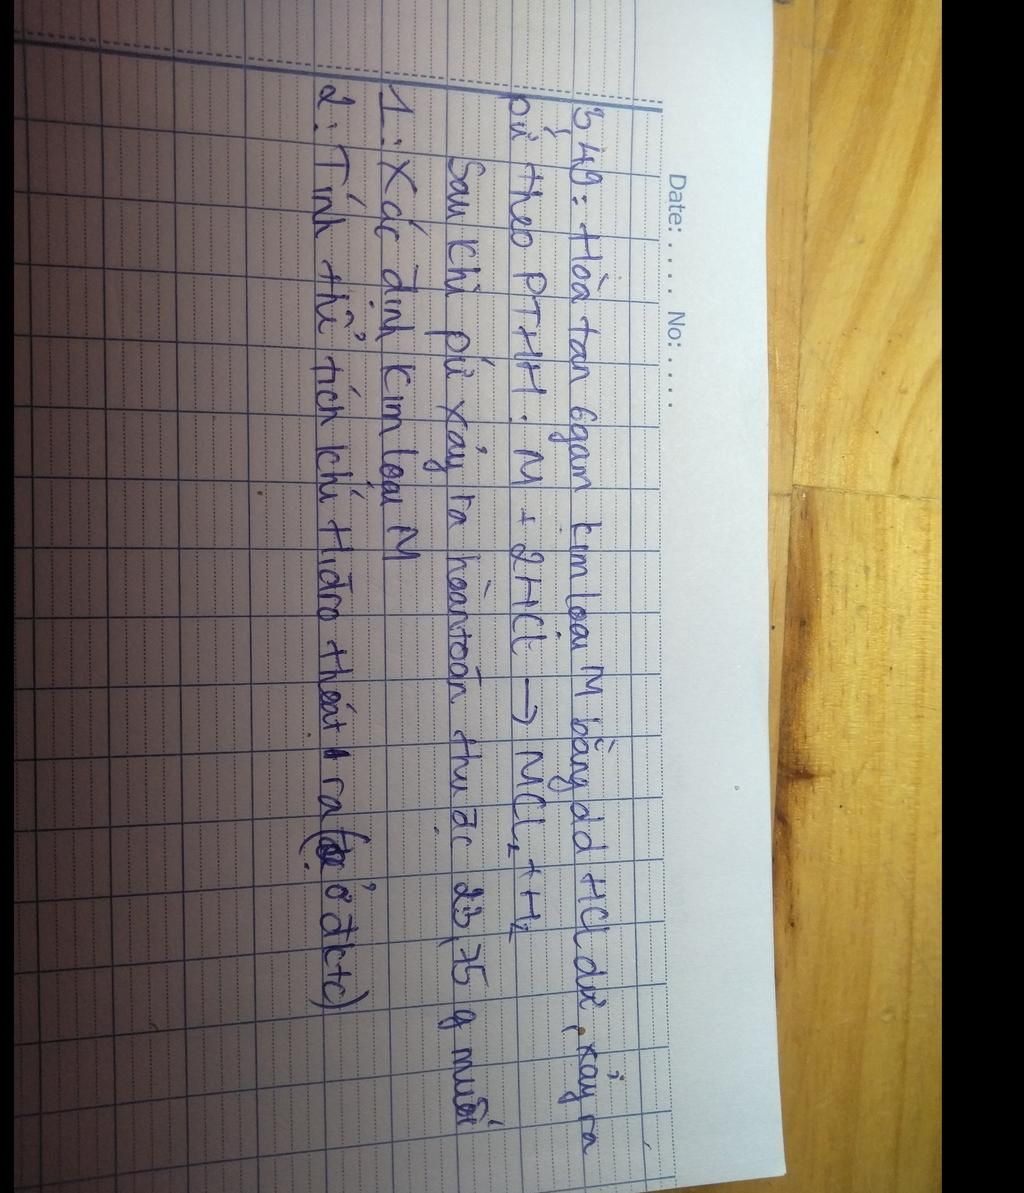 Date: . . . . . No: . . . .
3.49: Hòa tan 6gam kim loại M bằng dd HCl dư, xảy ra
pứ theo PTHH. M + 2HCl → MCl₂ + H₂
Sau khi pứ xảy ra hoàn toàn thu đc 23,75 g muối
1: Xác định kim loại M
2: Tính thể tích khí Hiđro thoát ra (ở đktc)